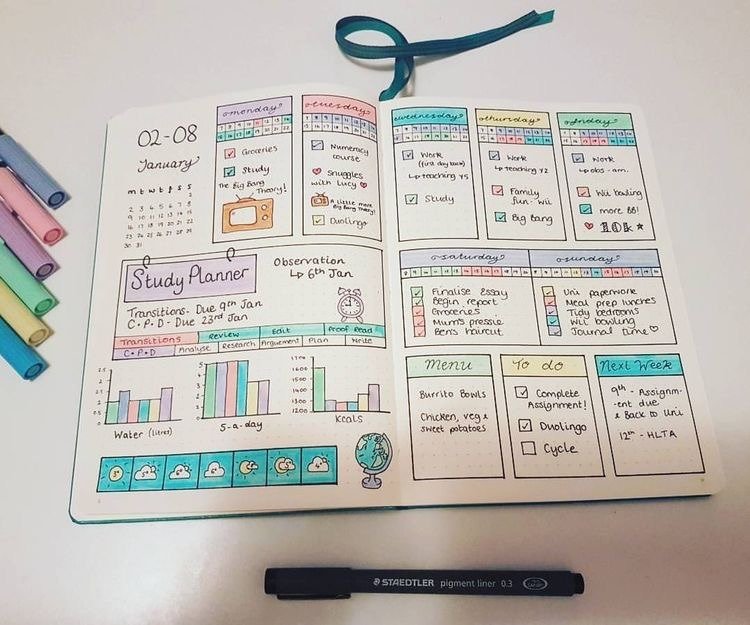 02-08
January
m t w t f s s
2 3 4 5 6 7 8
9 10 11 12 13 14 15
16 17 18 19 20 21 22
23 24 25 26 27 28 29
30 31
monday
Groceries
Study
The Big Bang
Theory!
tuesday
Numeracy
course
Snuggles
with Lucy
A little more
Big Bang Theory!
Duolingo
wednesday
Work
(first day back)
↳ teaching Y5
Study
thursday
Work
↳ teaching Y2
Family
fun - wii
Big Bang
friday
Work
↳ obs - am.
Wii bowling
more BB!
10k
Study Planner
Observation
↳ 6th Jan
Transitions - Due 9th Jan
C.P.D - Due 23rd Jan
Transitions Review Edit Proof Read
C.P.D Analyse Research Arguement Plan Write
2.5
2
1.5
1
0.5
Water (litres)
5
4
3
2
1
5-a-day
1700
1600
1500
1400
1300
1200
Kcals
3° 5° 4° 6° 5° 4°
saturday
Finalise Essay
Begin report
Groceries
Mum's pressie
Ben's haircut
sunday
Uni paperwork
Meal prep lunches
Tidy bedrooms
Wii bowling
Journal time
Menu
Burrito Bowls
Chicken, veg &
sweet potatoes
To do
Complete
Assignment!
Duolingo
Cycle
Next Week
9th - Assignm-
-ent due
& Back to Uni
12th - HLTA
STAEDTLER pigment liner 0.3